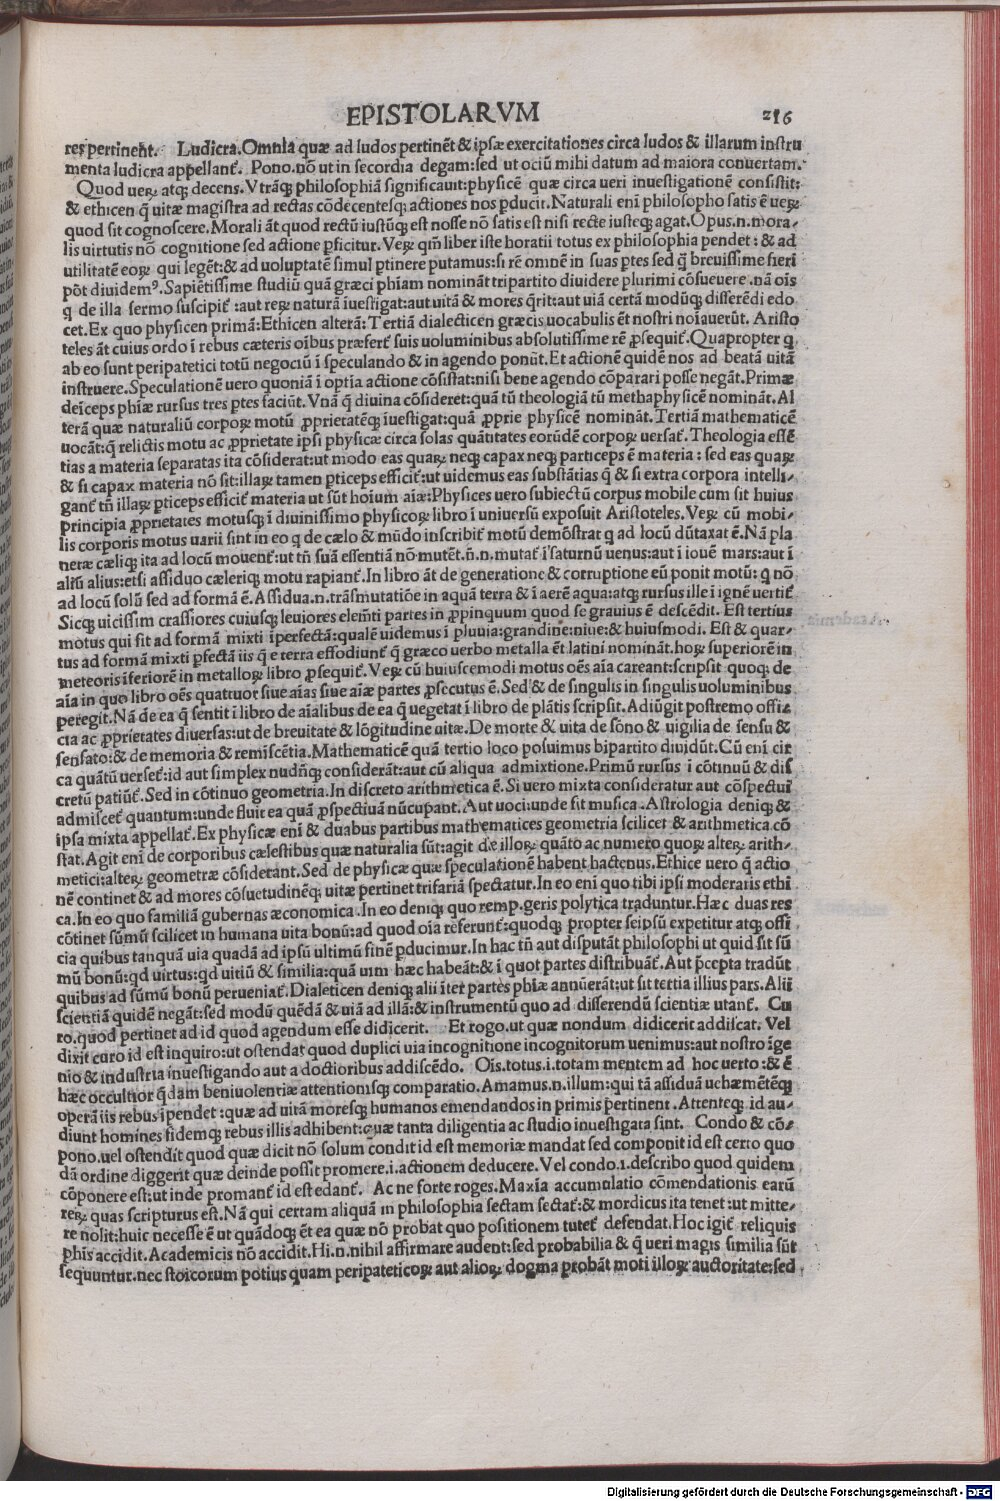 EPISTOLARVM 216
res pertinent. Ludicra. Omnia quæ ad ludos pertinēt & ipsæ exercitationes circa ludos & illarum instru
menta ludicra appellant̄. Pono.nō ut in secordia degam:sed ut ociū mihi datum ad maiora conuertam.
Quod ueꝝ atqꝫ decens.Vtrāqꝫ philosophiā significauit:physicē quæ circa ueri inuestigationē consistit:
& ethicen q̄ uitæ magistra ad rectas cōdecentesqꝫ actiones nos ꝑducit.Naturali eni philosopho satis ē ueꝝ
quod sit cognoscere.Morali āt quod rectū iustūqꝫ est nosse nō satis est nisi recte iusteqꝫ agat.Opus.n.mora/
lis uirtutis nō cognitione sed actione ꝑficitur.Veꝝ qm̄ liber iste horatii totus ex philosophia pendet:& ad
utilitatē eoꝝ qui legēt:& ad uoluptatē simul ꝑtinere putamus:si rē omnē in suas ꝑtes sed q̄ breuissime fieri
pōt diuidemꝰ.Sapiētissime studiū quā græci phiam nomināt tripartito diuidere plurimi cōsueuere.nā oīs
q̄ de illa sermo suscipit̄:aut reꝝ naturā īuestigat:aut uitā & mores q̄rit:aut uiā certā modūqꝫ differēdi edo
cet.Ex quo physicen primā:Ethicen alterā:Tertiā dialecticen græcis uocabulis ēt nostri noīauerūt. Aristo
teles āt cuius ordo ī rebus cæteris oībus præfert̄ suis uoluminibus absolutissime rē ꝓsequit̄.Quapropter q̄
ab eo sunt peripatetici totū negociū ī speculando & in agendo ponūt.Et actionē quidē nos ad beatā uitā
instruere.Speculationē uero quoniā ī optīa actione cōsistat:nisi bene agendo cōparari posse negāt.Primæ
deīceps phiæ rursus tres ꝑtes faciūt.Vnā q̄ diuina cōsideret:quā tū theologiā tū methaphysicē nomināt.Al
terā quæ naturaliū corpoꝝ motū ꝓprietatēqꝫ īuestigat:quā ꝓprie physicē nomināt.Tertiā mathematicē
uocāt:q̄ relictis motu ac ꝓprietate ipsi physicæ circa solas quātitates eorūdē corpoꝝ uersat̄.Theologia essē
tias a materia separatas ita cōsiderat:ut modo eas quaꝝ neqꝫ capax neqꝫ particeps ē materia:sed eas quaꝝ
& si capax materia nō sit:illaꝝ tamen ꝑticeps efficit̄:ut uidemus eas substātias q̄ & si extra corpora intelli/
gant̄ tn̄ illaꝝ ꝑticeps efficit̄ materia ut sūt hoium aiæ:Physices uero subiectū corpus mobile cum sit huius
principia ꝓprietates motusqꝫ ī diuinissimo physicoꝝ libro ī uniuersū exposuit Aristoteles.Veꝝ cū mobi/
lis corporis motus uarii sint in eo q̄ de cælo & mūdo inscribit̄ motū demōstrat q̄ ad locū dūtaxat ē.Nā pla
neræ cæliqꝫ ita ad locū mouent̄:ut tn̄ suā essentiā nō mutēt.n̄.n.mutat̄ ī saturnū uenus:aut ī iouē mars:aut ī
aliū alius:etsi assiduo cæleriqꝫ motu rapiant̄.In libro āt de generatione & corruptione eū ponit motū: q̄ nō
ad locū solū sed ad formā ē.Assidua.n.trāsmutatiōe in aquā terra & ī aerē aqua:atqꝫ rursus ille ī ignē uertit̄
Sicqꝫ uicissim crassiores cuiusqꝫ leuiores elemēti partes in ꝓpinquum quod se grauius ē descēdit. Est tertius
motus qui fit ad formā mixti īperfectā:qualē uidemus ī pluuia:grandine:niue:& huiusmodi. Est & quar/
tus ad formā mixti ꝑfectā iis q̄ e terra effodiunt̄ q̄ græco uerbo metalla ēt latini nomināt.hoꝝ superiorē in
meteoris īferiorē in metalloꝝ libro ꝓsequit̄.Veꝝ cū huiuscemodi motus oēs aīa careant:scripsit quoqꝫ de
aīa in quo libro oēs quattuor siue aīas siue aīæ partes ꝓsecutus ē.Sed & de singulis in singulis uoluminibus
peregit.Nā de ea q̄ sentit ī libro de aīalibus de ea q̄ uegetat ī libro de plātis scripsit.Adiūgit postremo offi/
cia ac ꝓprietates diuersas:ut de breuitate & lōgitudine uitæ.De morte & uita de sōno & uigilia de sensu &
sensato:& de memoria & remiscētia.Mathematicē quā tertio loco posuimus bipartito diuidūt.Cū eni cir
ca quātū uerset̄:id aut simplex nudūqꝫ considerāt:aut cū aliqua admixtione.Primū rursus ī cōtinuū & dis
cretū patiūt̄.Sed in cōtinuo geometria.In discreto arithmetica ē.Si uero mixta consideratur aut cōspectui
admiscet̄ quantum:unde fluit ea quā ꝓspectiuā nūcupant.Aut uoci:unde sit musica.Astrologia deniqꝫ &
ipsa mixta appellat̄.Ex physicæ eni & duabus partibus mathematices geometria scilicet & arithmetica cō
stat.Agit eni de corporibus cælestibus quæ naturalia sūt:agit de illoꝝ quāto ac numero quoꝝ alteꝝ arith/
metici:alteꝝ geometræ cōsiderant.Sed de physicæ quæ speculationē habent hactenus.Ethice uero q̄ actio
nē continet & ad mores cōsuetudinēqꝫ uitæ pertinet trifariā spectatur.In eo eni quo tibi ipsi moderaris ethi
ca.In eo quo familiā gubernas æconomica.In eo deniqꝫ quo remp.geris polytica traduntur.Hæc duas res
cōtinet sūmū scilicet in humana uita bonū:ad quod oīa referunt̄:quodqꝫ propter seipsū expetitur atqꝫ offi
cia quibus tanquā uia quadā ad ipsū ultimū finē ꝑducimur.In hac tn̄ aut disputāt philosophi ut quid sit sū
mū bonū:qd uirtus:qd uitiū & similia:quā uim hæc habeāt:& ī quot partes distribuāt̄.Aut p̄cepta tradūt
quibus ad sūmū bonū perueniat̄.Dialeticen deniqꝫ alii īter partes phiæ annūerāt:ut sit tertia illius pars.Alii
scientiā quidē negāt:sed modū quēdā & uiā ad illā:& instrumentū quo ad differendū scientiæ utant̄. Cu
ro.quod pertinet ad id quod agendum esse didicerit. Et rogo.ut quæ nondum didicerit addiscat. Vel
dixit curo id est inquiro:ut ostendat quod duplici uia incognitione incognitorum uenimus:aut nostro īge
nio & industria inuestigando aut a doctioribus addiscēdo. Oīs.totus.i.totam mentem ad hoc uerto:& ē
hæc occultior q̄dam beniuolentiæ attentionisqꝫ comparatio.Amamus.n.illum:qui tā assiduā uehæmētēqꝫ
operā iis rebus īpendet:quæ ad uitā moresqꝫ humanos emendandos in primis pertinent.Attenteqꝫ id au/
diunt homines fidemqꝫ rebus illis adhibent:quæ tanta diligentia ac studio inuestigata sint. Condo & cō/
pono.uel ostendit quod quæ dicit nō solum condit id est memoriæ mandat sed componit id est certo quo
dā ordine diggerit quæ deinde possit promere.i.actionem deducere.Vel condo.i.describo quod quidem
cōponere est:ut inde promant̄ id est edant̄. Ac ne forte roges.Maxīa accumulatio cōmendationis earū
reꝝ quas scripturus est.Nā qui certam aliquā in philosophia sectam sectat̄:& mordicus ita tenet:ut mitte/
re nolit:huic necesse ē ut quādoqꝫ ēt ea quæ nō probat quo positionem tutet̄ defendat.Hoc igit̄ reliquis
phis accidit.Academicis nō accidit.Hi.n.nihil affirmare audent:sed probabilia & q̄ ueri magis similia sūt
sequuntur.nec stoicorum potius quam peripateticoꝝ aut alioꝝ dogma probāt moti illoꝝ auctoritate:sed
Digitalisierung gefördert durch die Deutsche Forschungsgemeinschaft - DFG